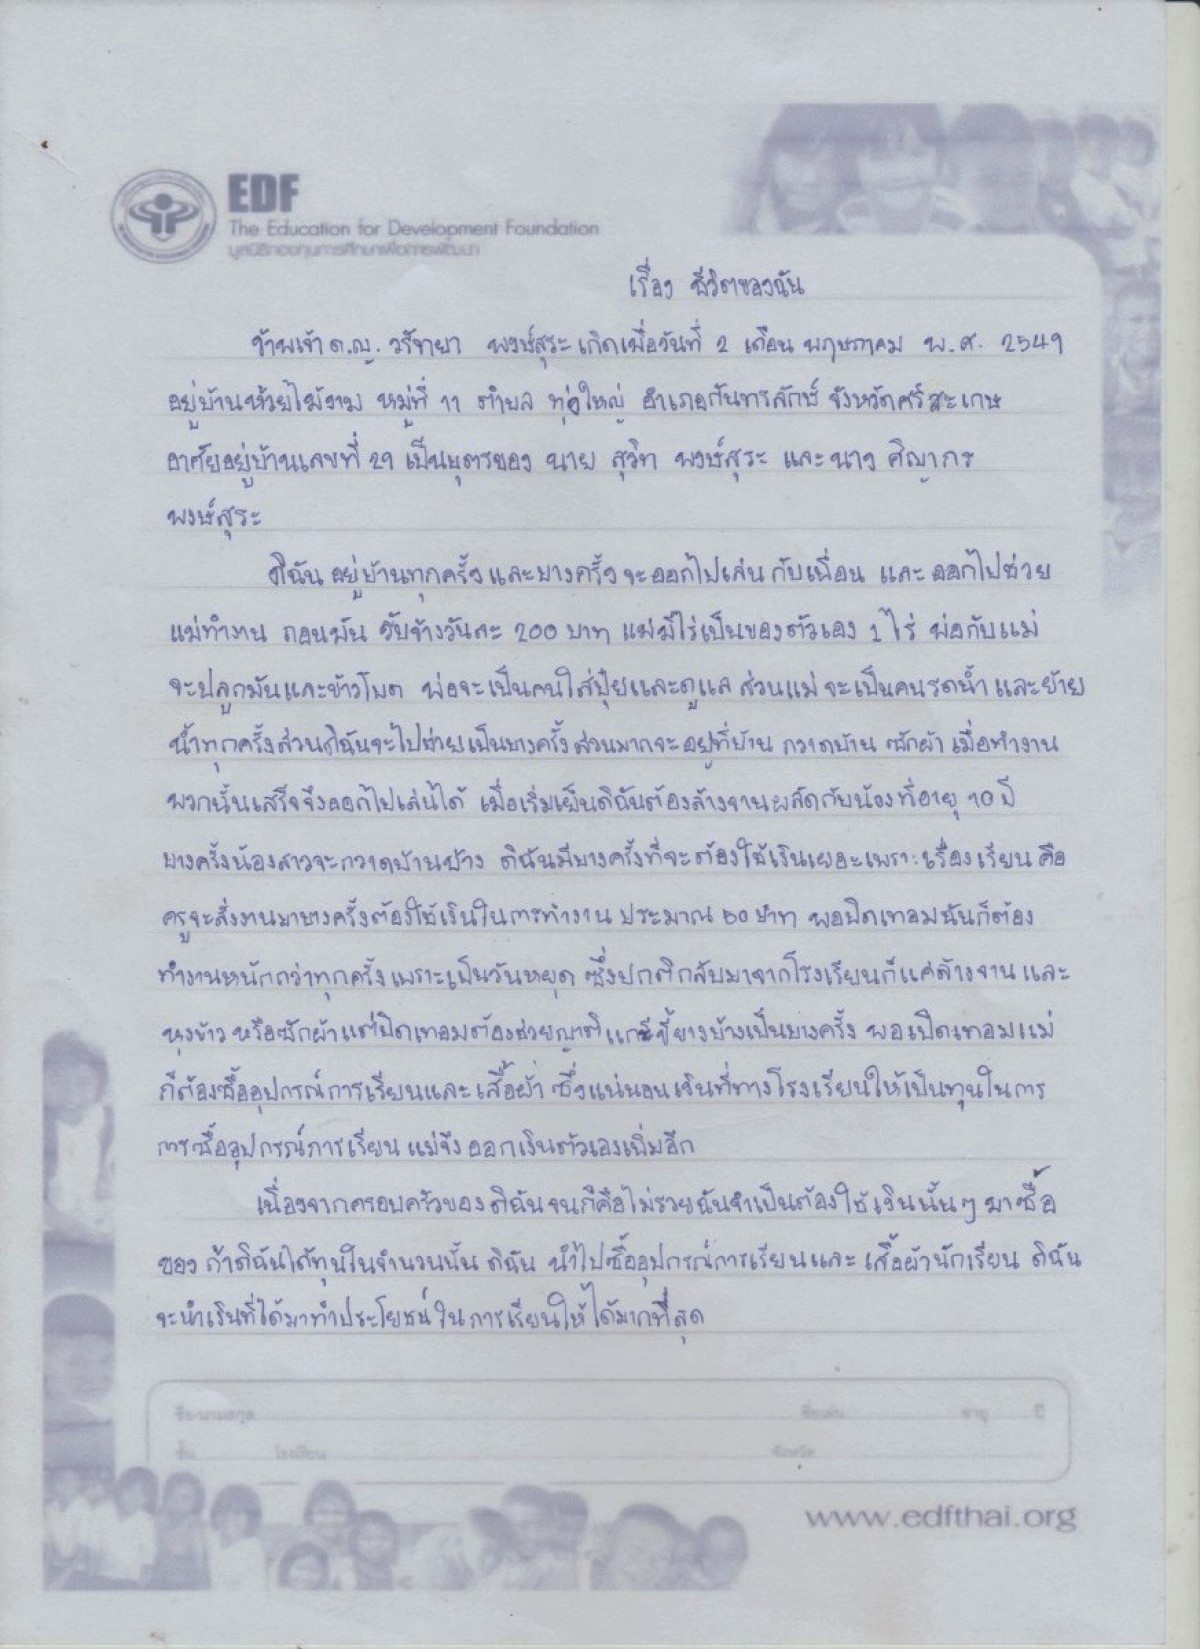 EDF
The Education for Development Foundation
มูลนิธิกองทุนการศึกษาเพื่อการพัฒนา
เรื่อง ชีวิตของฉัน
ข้าพเจ้า ด.ญ. วรัทยา พงษ์สุระ เกิดเมื่อวันที่ 2 เดือน พฤษภาคม พ.ศ. 2549
อยู่บ้านห้วยไม้งาม หมู่ที่ 11 ตำบล ทุ่งใหญ่ อำเภอกันทรลักษ์ จังหวัดศรีสะเกษ
อาศัยอยู่บ้านเลขที่ 29 เป็นบุตรของ นาย สุวิท พงษ์สุระ และ นาง ศิญากร
พงษ์สุระ
ดิฉัน อยู่บ้านทุกครั้ง และบางครั้ง จะออกไปเล่น กับเพื่อน และ ออกไปช่วย
แม่ทำงาน ถอนมัน รับจ้างวันละ 200 บาท แม่มีไร่เป็นของตัวเอง 1 ไร่ พ่อกับแม่
จะปลูกมันและข้าวโพด พ่อจะเป็นคนใส่ปุ๋ยและดูแล ส่วนแม่ จะเป็นคนรดน้ำ และย้าย
น้ำทุกครั้งส่วนดิฉันจะไปช่วยเป็นบางครั้ง ส่วนมากจะอยู่ที่บ้าน กวาดบ้าน ซักผ้า เมื่อทำงาน
พวกนั้นเสร็จจึงออกไปเล่นได้ เมื่อเริ่มเย็นดิฉันต้องล้างจานผลัดกับน้องที่อายุ 10 ปี
บางครั้งน้องสาวจะกวาดบ้านบ้าง ดิฉันมีบางครั้งที่จะต้องใช้เงินเยอะเพราะเรื่องเรียน คือ
ครูจะสั่งงานมาบางครั้งต้องใช้เงินในการทำงาน ประมาณ 60 บาท พอปิดเทอมฉันก็ต้อง
ทำงานหนักกว่าทุกครั้ง เพราะเป็นวันหยุด ซึ่งปกติกลับมาจากโรงเรียนก็แค่ล้างจาน และ
หุงข้าว หรือซักผ้า แต่ปิดเทอมต้องช่วยญาติ แกะขี้ยางบ้างเป็นบางครั้ง พอเปิดเทอมแม่
ก็ต้องซื้ออุปกรณ์การเรียนและ เสื้อผ้า ซึ่งแน่นอนเงินที่ทางโรงเรียนให้เป็นทุนในการ
การซื้ออุปกรณ์การเรียน แม่จึง ออกเงินตัวเองเพิ่มอีก
เนื่องจากครอบครัวของ ดิฉันจนก็คือไม่รวยฉันจำเป็นต้องใช้ เงินนั้นๆ มาซื้อ
ของ ถ้าดิฉันได้ทุนในจำนวนนั้น ดิฉัน นำไปซื้ออุปกรณ์การเรียนและ เสื้อผ้านักเรียน ดิฉัน
จะนำเงินที่ได้มาทำประโยชน์ ใน การเรียนให้ได้มากที่สุด
ชื่อ-นามสกุล ชื่อเล่น อายุ ปี
ชั้น โรงเรียน จังหวัด
www.edfthai.org